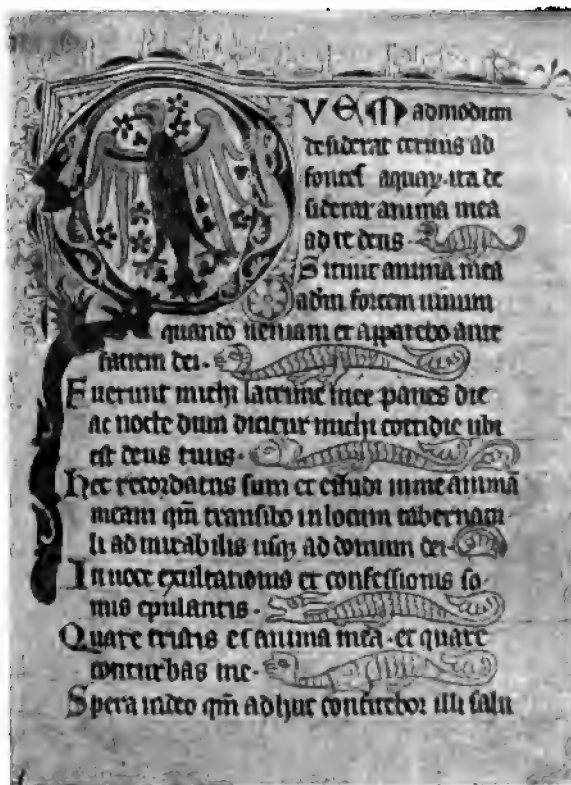 QVEMadmodum
desiderat ceruus ad
fontes aquaꝝ · ita de
siderat anima mea
ad te deus ·
Sitiuit anima mea
ad deū fontem uiuum
quando ueniam et apparebo ante
faciem dei ·
Fuerunt michi lacrime mee panes die
ac nocte dum dicitur michi cotidie ubi
est deus tuus ·
Hec recordatus sum et effudi in me animā
meam qm̄ transibo in locum tabernacu
li admirabilis usqꝫ ad domum dei ·
In uoce exultationis et confessionis so
nus epulantis ·
Quare tristis es anima mea · et quare
conturbas me ·
Spera in deo qm̄ adhuc confitebor illi salu